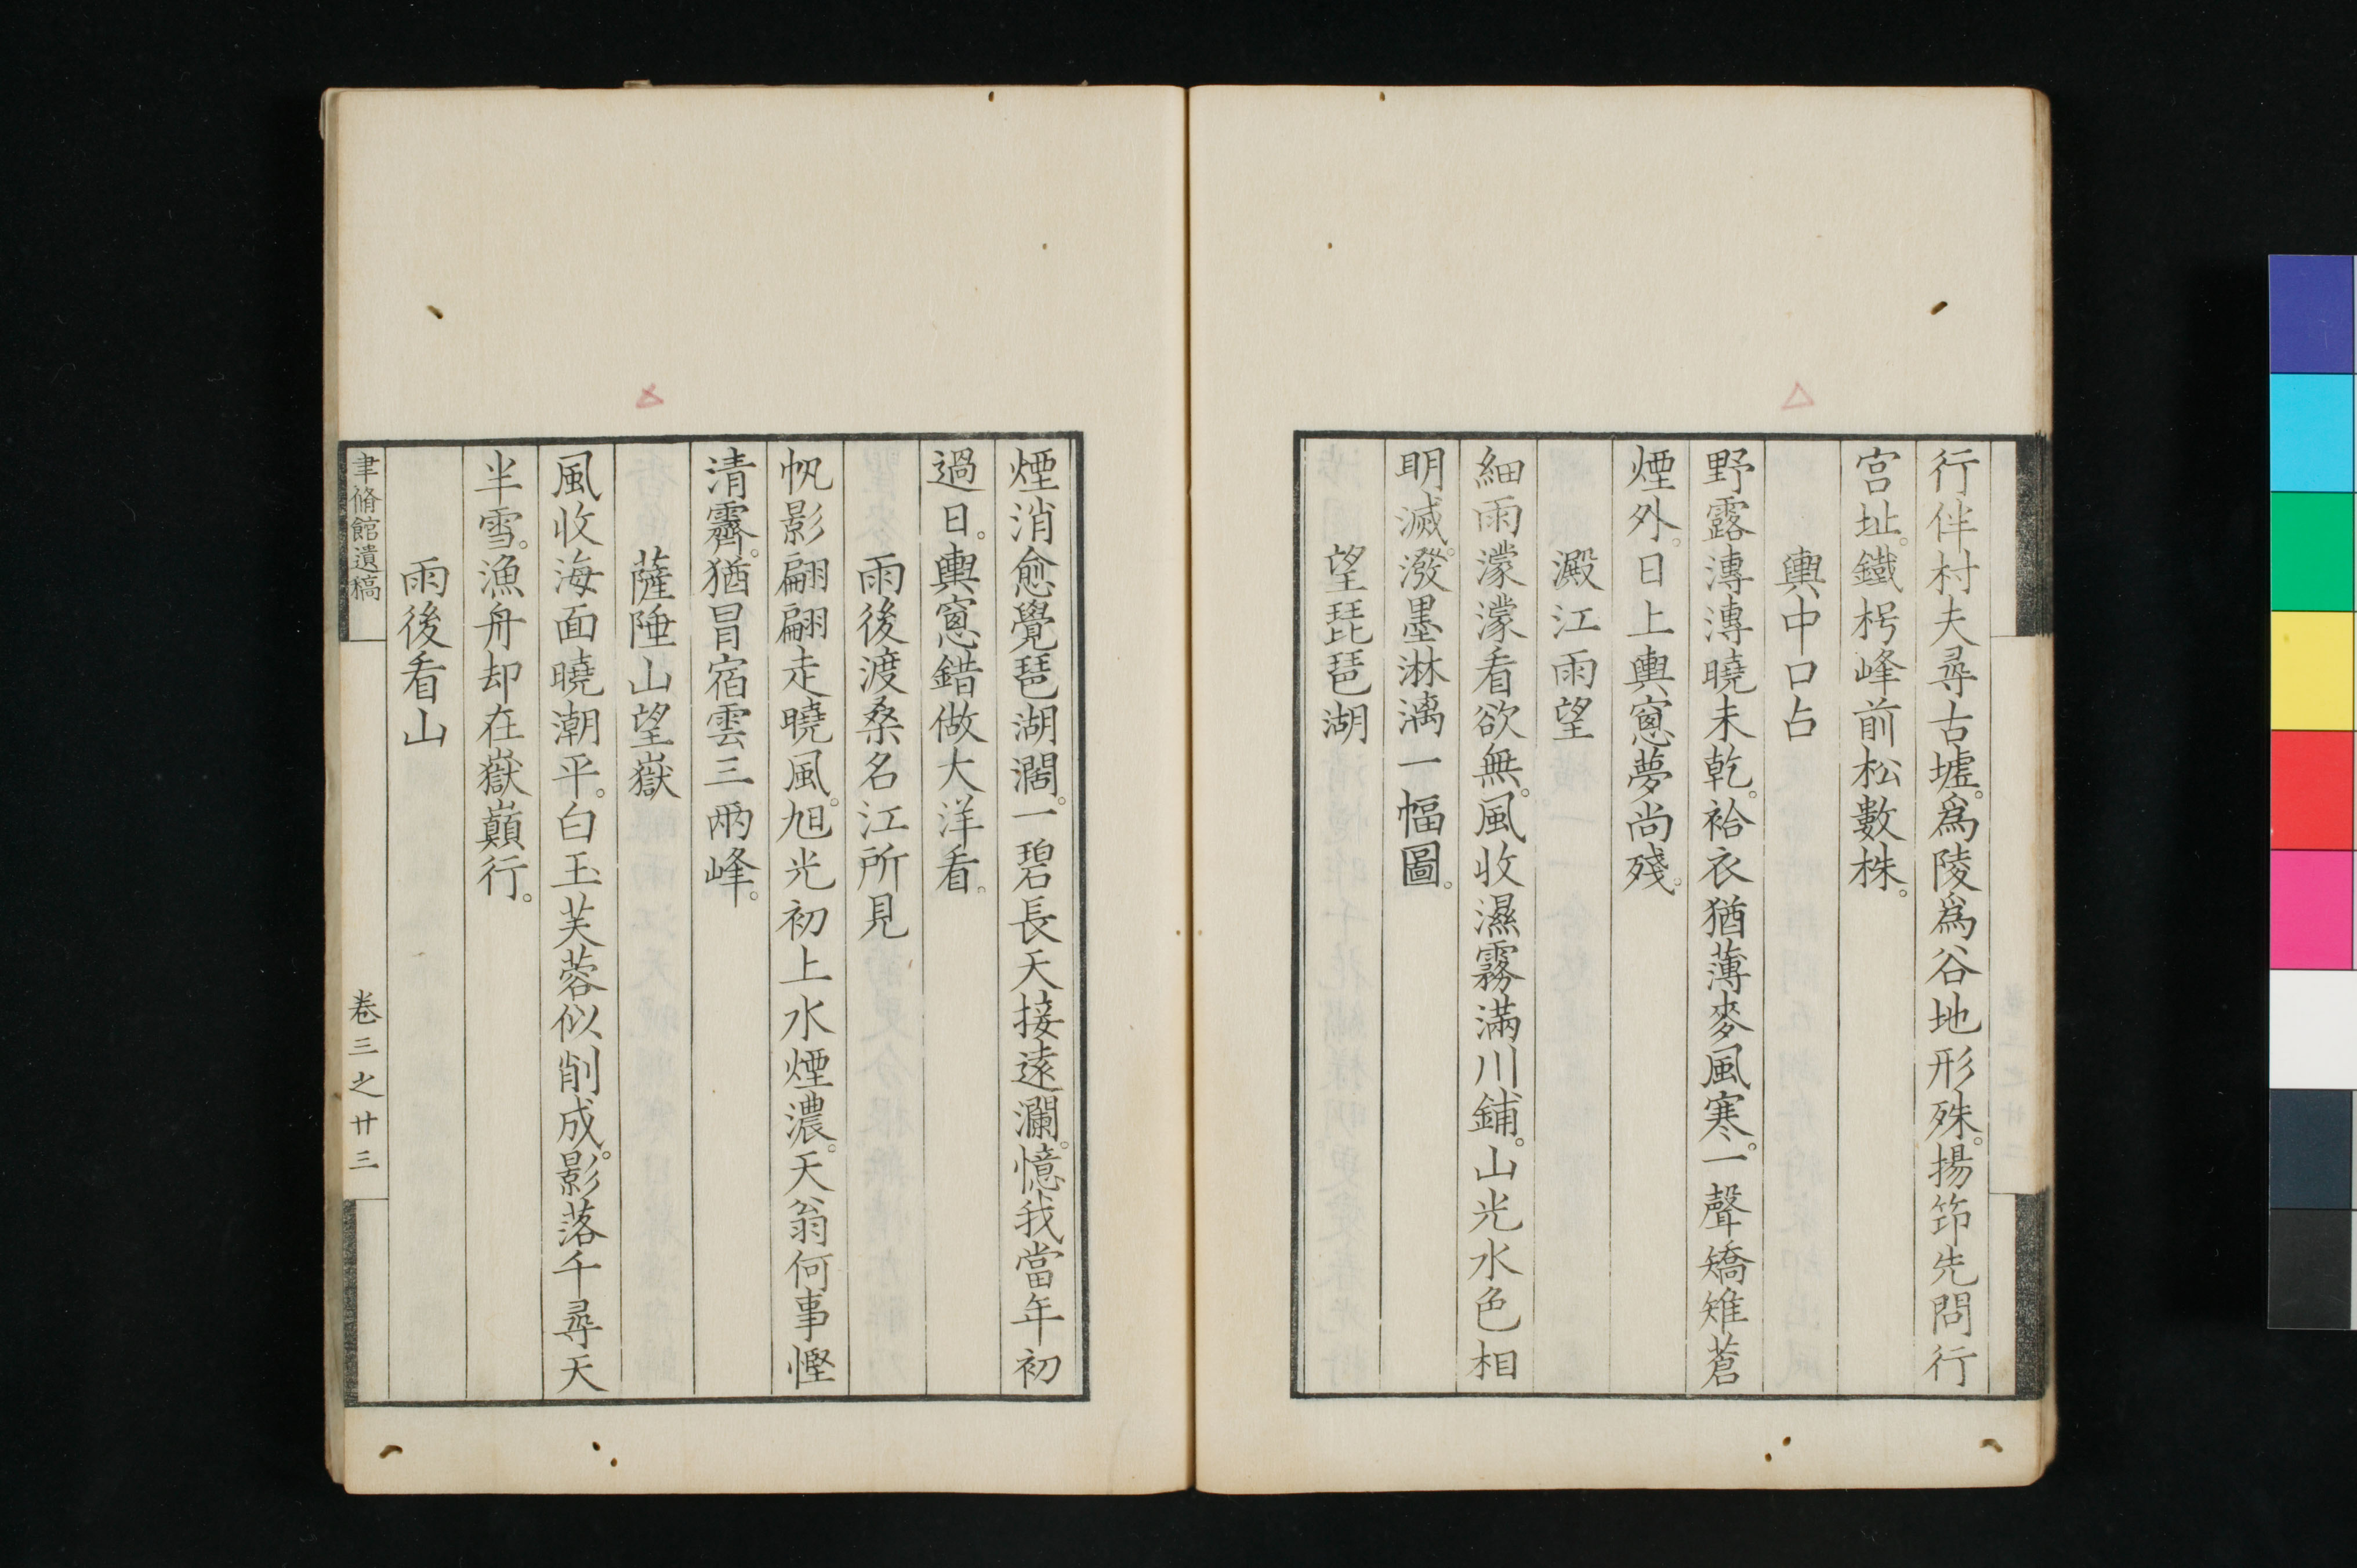 行伴村夫尋古墟。爲陵爲谷地形殊。揚笻先問行
宮址。鐵枴峰前松數株。
輿中口占
野露漙漙曉未乾。袷衣猶薄麥風寒。一聲矯雉蒼
煙外。日上輿窻夢尚殘。
澱江雨望
細雨濛濛看欲無。風收濕霧滿川鋪。山光水色相
明滅。潑墨淋漓一幅圖。
望琵琶湖
煙消愈覺琶湖濶。一碧長天接遠瀾。憶我當年初
過日。輿窻錯做大洋看。
雨後渡桑名江所見
帆影翩翩走曉風。旭光初上水煙濃。天翁何事慳
清霽。猶冒宿雲三兩峰。
薩陲山望嶽
風收海面曉潮平。白玉芙蓉似削成。影落千尋天
半雪。漁舟却在嶽巔行。
雨後看山
聿脩館遺稿
卷三之廿三